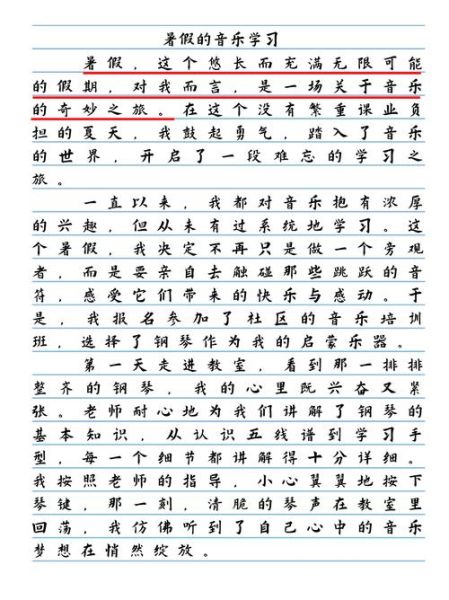 暑假的音乐学习
暑假，这个悠长而充满无限可能
的假期，对我而言，是一场关于音乐
的奇妙之旅。在这个没有繁重课业负
担的夏天，我鼓起勇气，踏入了音乐
的世界，开启了一段难忘的学习之
旅。
一直以来，我都对音乐抱有浓厚
的兴趣，但从未有过系统地学习。这
个暑假，我决定不再只是做一个旁观
者，而是要亲自去触碰那些跳跃的音
符，感受它们带来的快乐与感动。于
是，我报名参加了社区的音乐培训
班，选择了钢琴作为我的启蒙乐器。
第一天走进教室，看到那一排排
整齐的钢琴，我的心里既兴奋又紧
张。老师耐心地为我们讲解了钢琴的
基本知识，从认识五线谱到学习手
型，每一个细节都讲解得十分详细。
我按照老师的指导，小心翼翼地按下
琴键，那一刻，清脆的琴声在教室里
回荡，我仿佛听到了自己心中的音乐
梦想在悄然绽放。